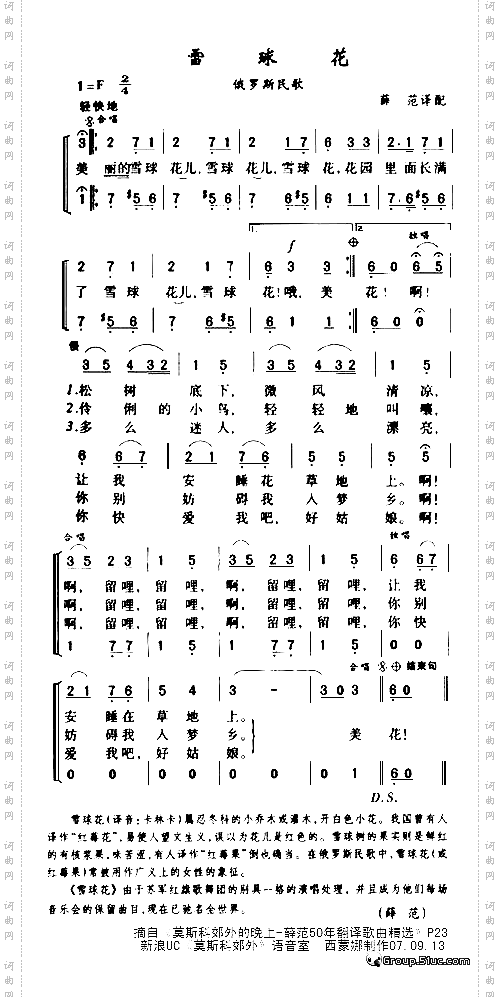 雪 球 花
1=F 2/4
俄罗斯民歌
轻快地
薛 范译配
合唱
3 2 7 1 2 7 1 2 1 7 1 6 3 3 2 · 1 7 1
美 丽的雪球 花儿,雪球 花儿,雪球 花,花园 里面长满
1 7 #5 6 7 #5 6 7 #5 6 6 1 1 7 · 6 #5 6
1. 2.
独唱
f
2 7 1 2 1 7 6 3 3 6 0 6 5
了 雪球 花儿,雪球 花!哦,美 花! 啊!
7 #5 6 7 6 #5 6 1 1 6 0 0
慢
3 5 4 3 2 1 5 3 5 4 3 2 1 5
1.松 树 底 下, 微 风 清 凉,
2.伶 俐 的 小 鸟, 轻 轻 地 叫 嚷,
3.多 么 迷 人, 多 么 漂 亮,
6 6 7 2 1 7 6 5 5 5
让 我 安 睡 花 草 地 上。 啊!
你 别 妨 碍 我 入 梦 乡。 啊!
你 快 爱 我 吧, 好 姑 娘。 啊!
合唱
独唱
3 5 2 3 1 5 3 5 2 3 1 5 6 6 7
啊, 留 哩, 留 哩, 啊, 留 哩, 留 哩, 让 我
啊, 留 哩, 留 哩, 啊, 留 哩, 留 哩, 你 别
啊, 留 哩, 留 哩, 啊, 留 哩, 留 哩, 你 快
1 7 7 1 5 1 7 7 1 5 0 0
合唱
结束句
2 1 7 6 5 4 3 - 3 0 3 6 0
安 睡 在 草 地 上。 美 花!
妨 碍 我 入 梦 乡。
爱 我 吧, 好 姑 娘。
0 0 0 0 0 0 0 0 6 0
D.S.
雪球花(译音:卡林卡)属忍冬科的小乔木或灌木,开白色小花。我国曾有人
译作“红莓花”,易使人望文生义,误以为花儿是红色的。雪球树的果实则是鲜红
的有核浆果,味苦涩,有人译作“红莓果”倒也确当。在俄罗斯民歌中,雪球花(或
红莓果)常被用作广义上的女性的象征。
《雪球花》由于苏军红旗歌舞团的别具一格的演唱处理,并且成为他们每场
音乐会的保留曲目,现在已驰名全世界。
(薛 范)
摘自《莫斯科郊外的晚上-薛范50年翻译歌曲精选》P23
新浪UC《莫斯科郊外》语音室 西蒙娜制作07.09.13
Group.51uc.com
词曲网
词曲网